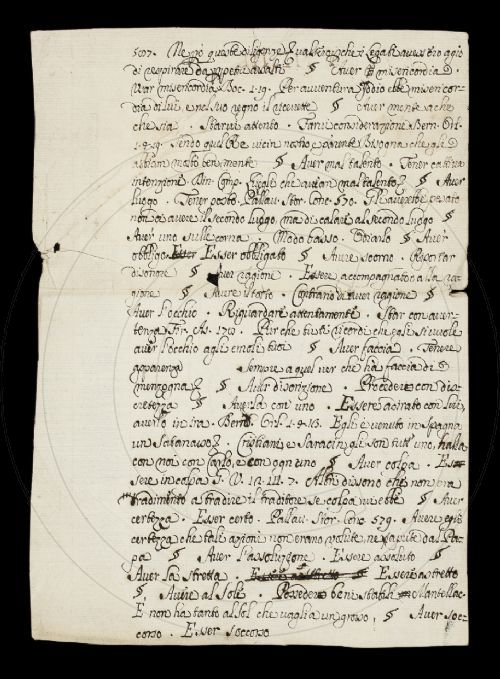 di respirare da ripeter avalli § Aver misericordia.
Usar misericordia. Boc. 1. 19. Per avventura Iddio ebbe misericor-
dia di lui, e nel suo regno il ricevette § Aver mente a che
che sia. Starvi attento. Farvi considerazione. Bern. Orl.
1. 9. 19. Sendo quel Re vicin nostro e parente Bisogna che gli
abbian molto ben mente § Aver mal talento. Tener cattiva
intenzione. Din. Comp. Quegli che avean mal talento § Aver
luogo. Tener posto. Pallav. Stor. Conc. 570. Gli averebbe pesato
non a avere il secondo luogo, ma di calare al secondo luogo §
Aver uno sulle corna. Modo basso. Odiarlo § Aver
obbligo. Esser obbligato § Avere scorno. Riportar
disonore § Aver raggione. Essere accompagnato dalla ra-
gione § Avere il torto. Contrario di aver raggione §
Aver l'occhio. Riguardare attentamente. Star con aver-
tenza Fir. As. 172. Pur che tu ti ricordi che egli si vuole
aver l'occhio agli emoli tuoi § Aver faccia. Tenere
apparenza Sempre a quel ver che ha faccia di
menzogna § Aver discrezione. Procedere con dis-
cretezza § Averla con uno. Essere adirato con lui,
averlo in ira. Bern. Orl. 1. 9. 13. Egli è venuto in Spagna
un Satanasso. Cristiani, e Saracin gli son tutt' uno, halla
con noi con Carlo, e con ogn uno § Aver colpa. Es-
sere in colpa G. V. 12. 111. 7. Altri dissono che non era
tradimento a tradire il traditore se colpa vi ebbe § Aver
certezza. Esser certo. Pallav. Stor. Conc. 579. Avere egli
certezza che tali azioni non erano volute, ne sapute dal Pa-
pa § Aver l'assoluzione. Essere assoluto §
Aver la stretta. § Essere astretto
§. Avere al Sole. Possedere beni stabili Mantellac.
E non ha tanto al Sol che vaglia un grosso. § Aver soc-
corso. Esser soccorso